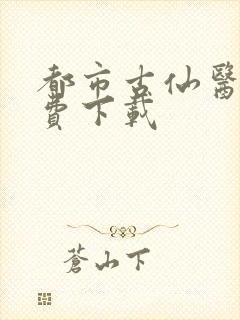 都市古仙醫
費下載
蒼山下